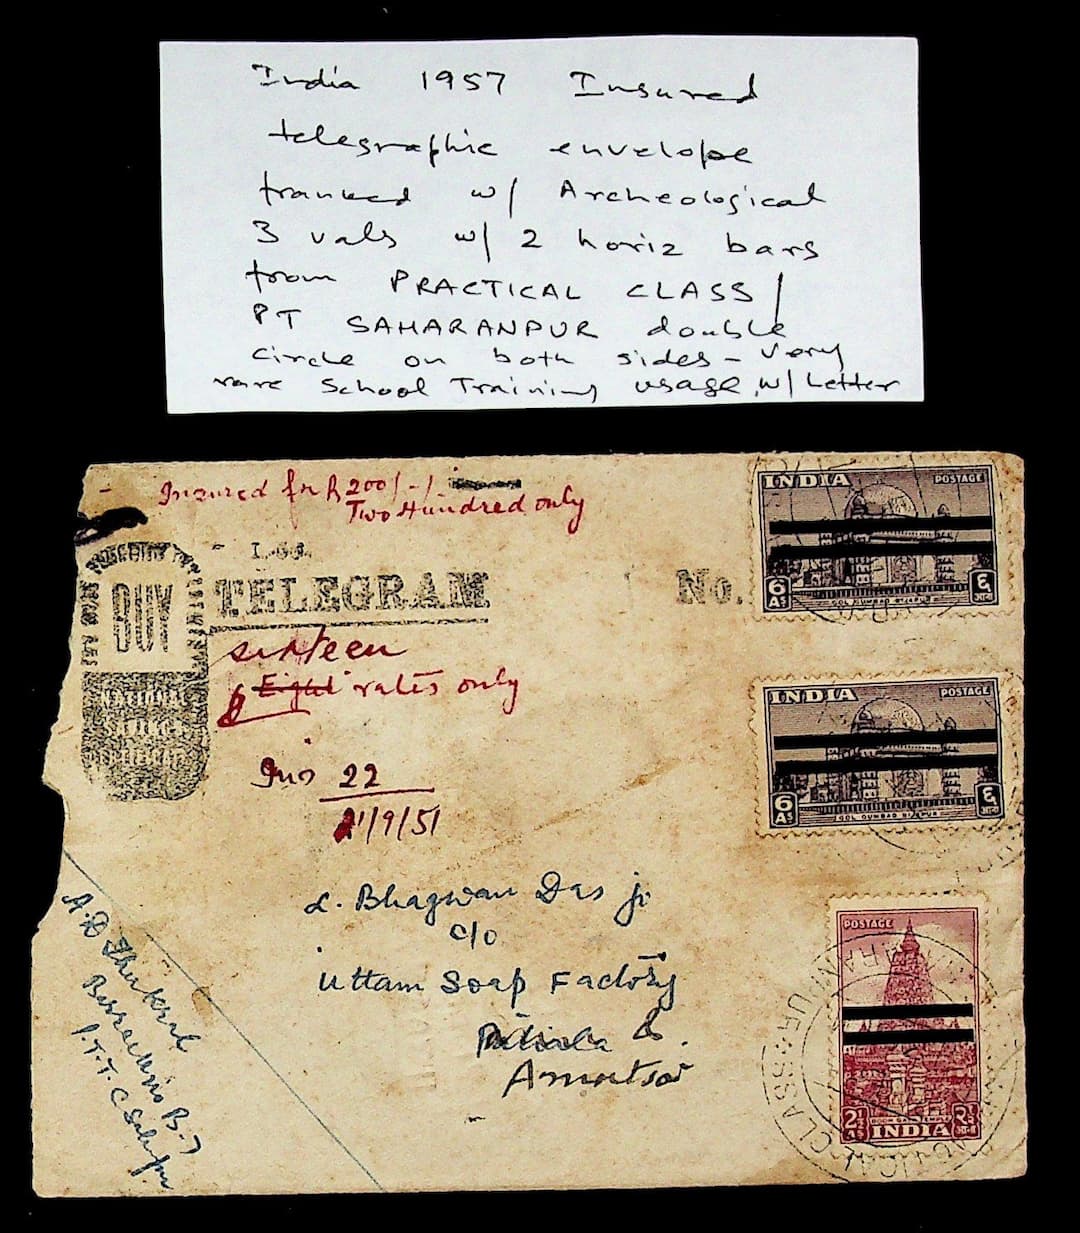 India 1957 Insured
telegraphic envelope
franked w/ Archeological
3 vals w/ 2 horiz bars
from PRACTICAL CLASS/
PT SAHARANPUR double
circle on both sides - Very
rare School Training usage, w/ Letter
Insured for Rs 200/-/
Two Hundred only
TELEGRAM No.
BUY
NATIONAL
SAVINGS
CERTIFICATES
sixteen
Eight rates only
Ins 22
1/9/51
L. Bhagwan Das ji
c/o
Uttam Soap Factory
Amritsar
A.D Thukral
Barrack No B-7
P.T.T.C S
INDIA POSTAGE
6 As ६ आना
GOL GUMBAD BIJAPUR
INDIA POSTAGE
6 As ६ आना
GOL GUMBAD BIJAPUR
POSTAGE
2½ As
INDIA
PRACTICAL CLASS